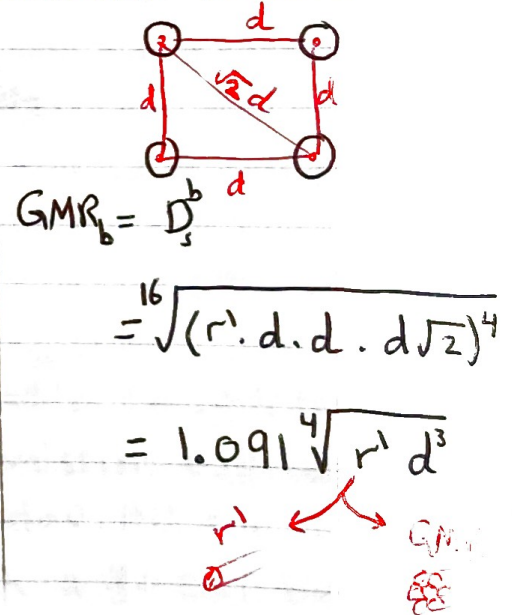 d
d √2 d d
d
GMR_b = D_s^b
= ¹⁶√(r'. d. d. d√2)⁴
= 1.091 ⁴√r' d³
r'